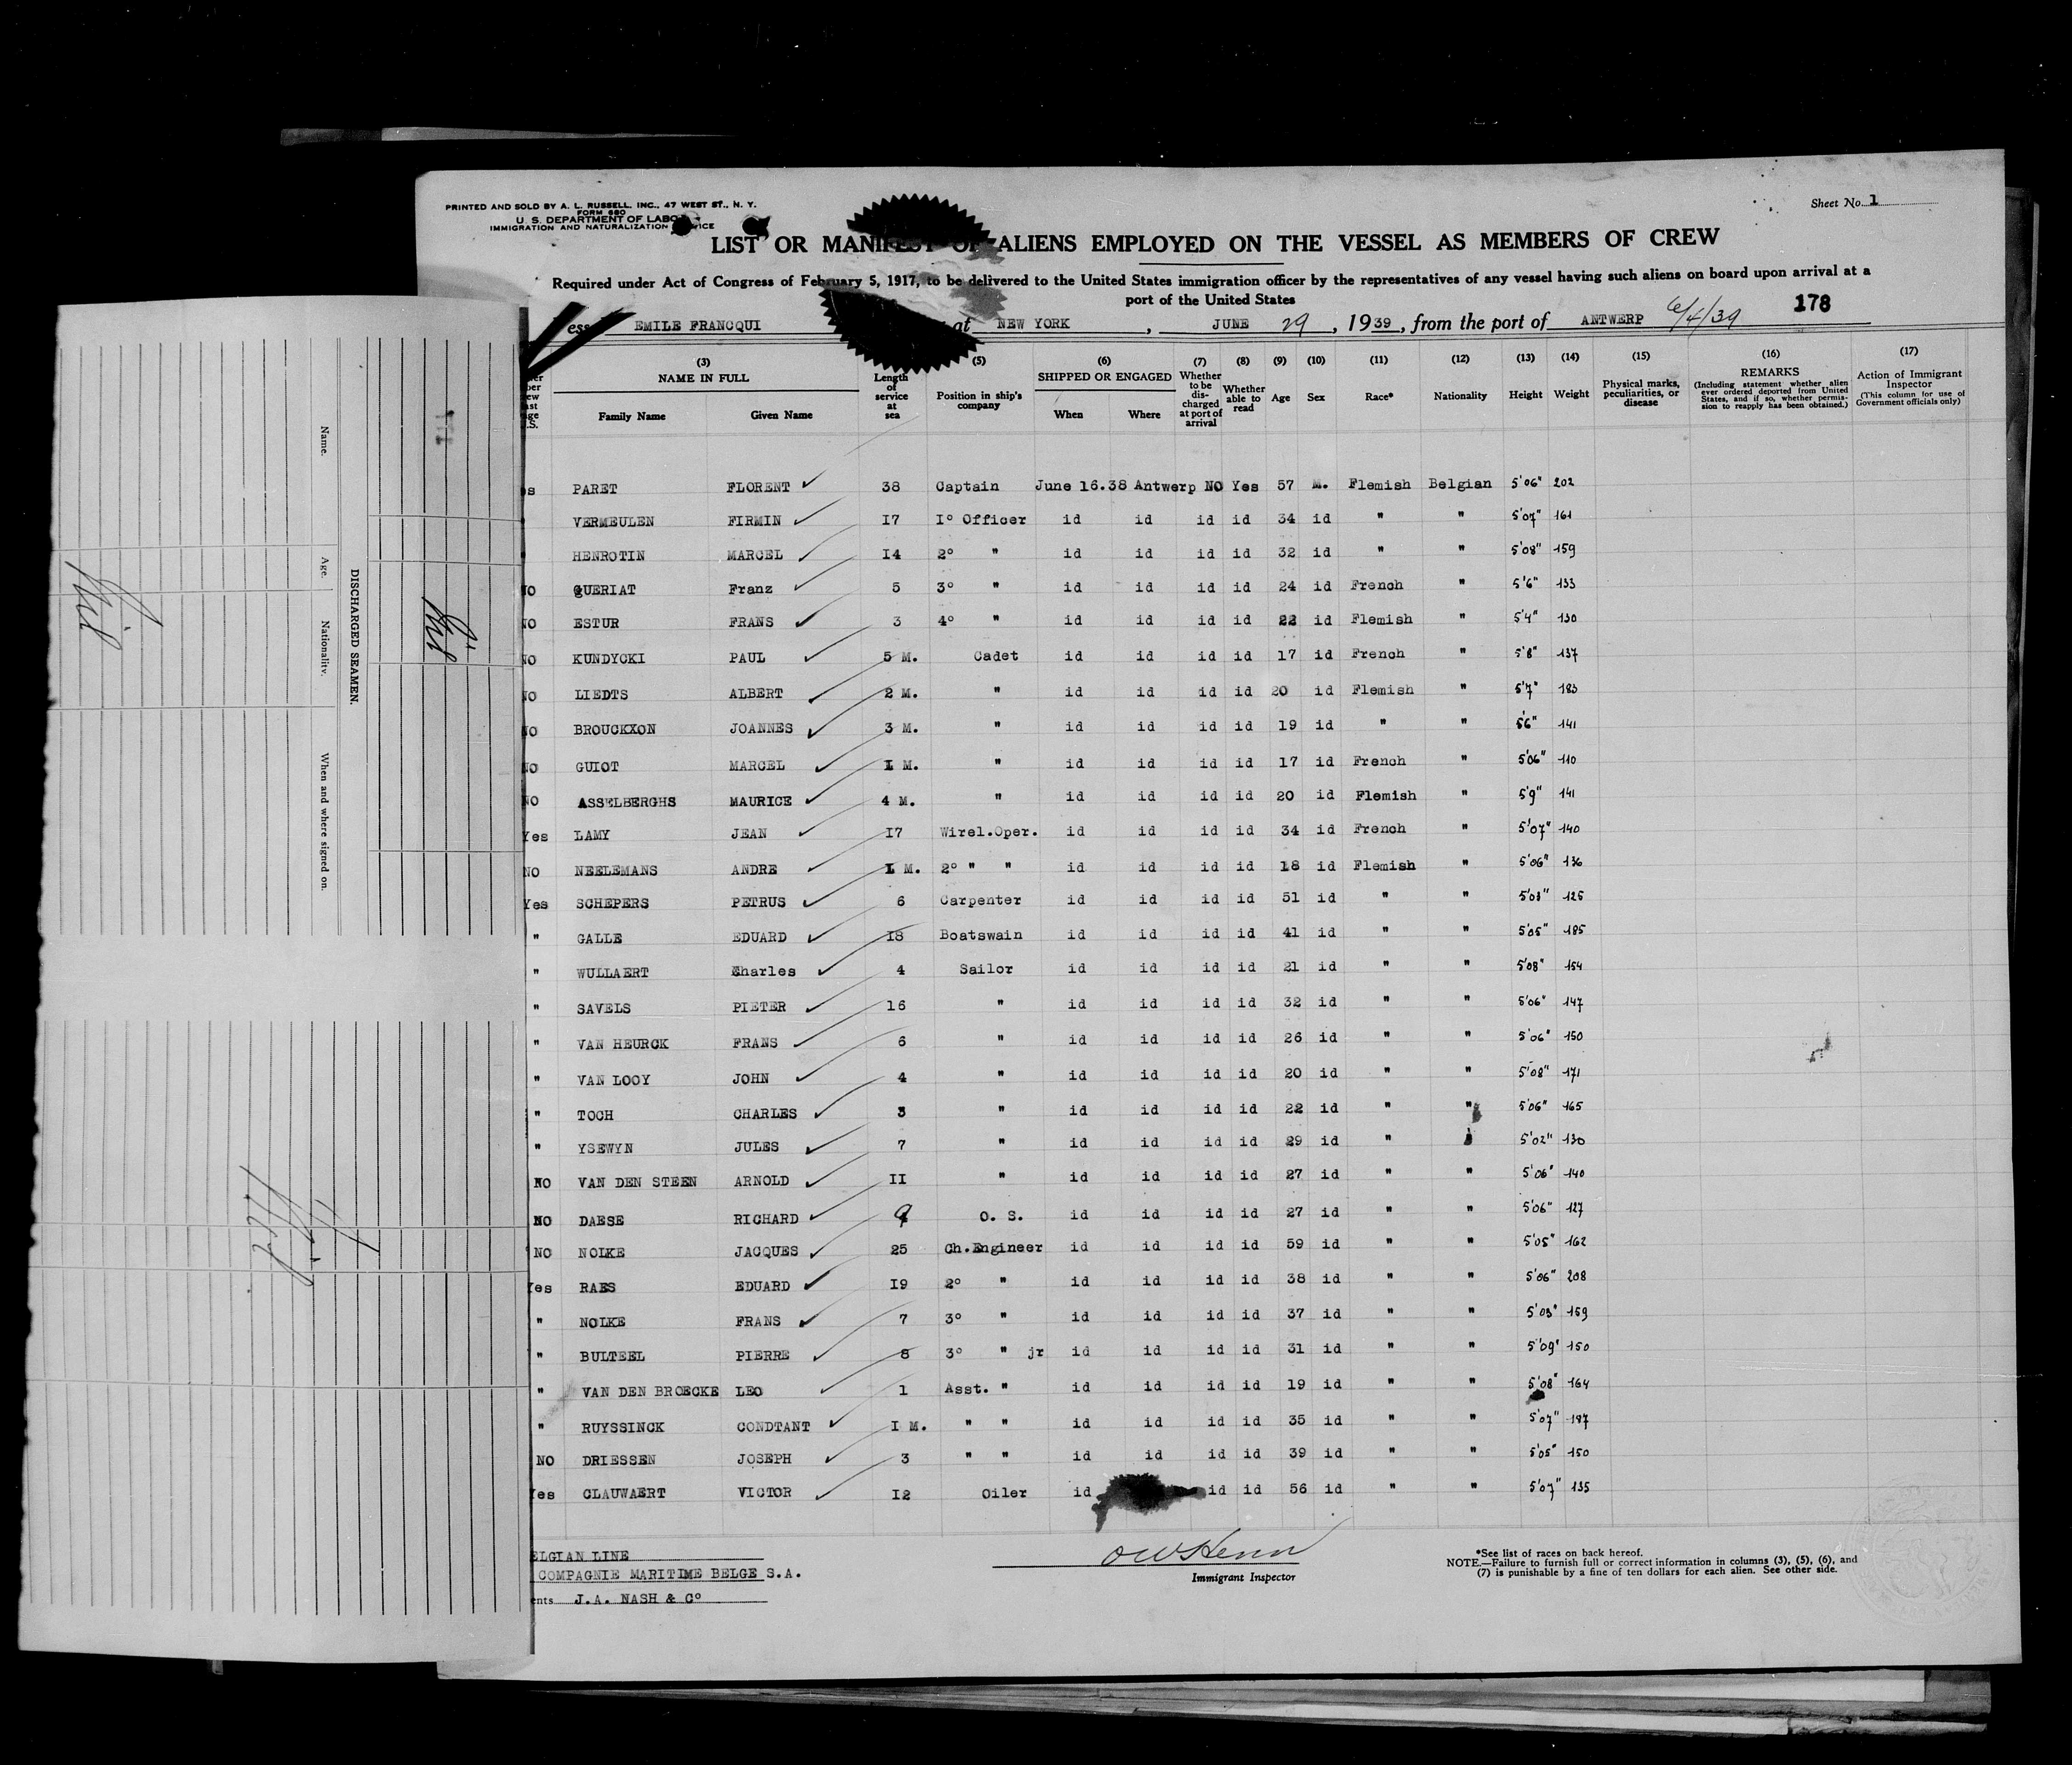 PRINTED AND SOLD BY A. L. RUSSELL, INC., 47 WEST ST., N. Y.
FORM 680
U. S. DEPARTMENT OF LABOR
IMMIGRATION AND NATURALIZATION
Sheet No. 1
LIST OR MANIFEST OF ALIENS EMPLOYED ON THE VESSEL AS MEMBERS OF CREW
Required under Act of Congress of February 5, 1917, to be delivered to the United States immigration officer by the representatives of any vessel having such aliens on board upon arrival at a
port of the United States
6/4/39 178
EMILE FRANCQUI at NEW YORK, JUNE 29, 1939, from the port of ANTWERP
(3) (5) (6) (7) (8) (9) (10) (11) (12) (13) (14) (15) (16) (17)
NAME IN FULL Family Name Given Name Length of service at sea Position in ship's company SHIPPED OR ENGAGED When Where Whether to be discharged at port of arrival Whether able to read Age Sex Race* Nationality Height Weight Physical marks, peculiarities, or disease REMARKS (Including statement whether alien ever ordered deported from United States, and if so, whether permission to reapply has been obtained.) Action of Immigrant Inspector (This column for use of Government officials only)
PARET FLORENT 38 Captain June 16.38 Antwerp NO Yes 57 M. Flemish Belgian 5'06" 202
VERMEULEN FIRMIN I7 I° Officer id id id id 34 id " " 5'07" 161
HENROTIN MARCEL I4 2° " id id id id 32 id " " 5'08" 159
NO GUERIAT Franz 5 3° " id id id id 24 id French " 5'6" 133
NO ESTUR FRANS 3 4° " id id id id 22 id Flemish " 5'4" 130
NO KUNDYCKI PAUL 5 M. Cadet id id id id 17 id French " 5'8" 137
NO LIEDTS ALBERT 2 M. " id id id id 20 id Flemish " 5'7" 183
NO BROUCKXON JOANNES 3 M. " id id id id 19 id " " 5'6" 141
NO GUIOT MARCEL I M. " id id id id 17 id French " 5'06" 110
NO ASSELBERGHS MAURICE 4 M. " id id id id 20 id Flemish " 5'9" 141
Yes LAMY JEAN I7 Wirel.Oper. id id id id 34 id French " 5'07" 140
NO NEELEMANS ANDRE I M. 2° " " id id id id 18 id Flemish " 5'06" 136
Yes SCHEPERS PETRUS 6 Carpenter id id id id 51 id " " 125
" GALLE EDUARD I8 Boatswain id id id id 41 id " " 5'05" 185
" WULLAERT Charles 4 Sailor id id id id 21 id " " 5'08" 154
" SAVELS PIETER 16 " id id id id 32 id " " 5'06" 147
" VAN HEURCK FRANS 6 " id id id id 26 id " " 5'06" 150
" VAN LOOY JOHN 4 " id id id id 20 id " " 5'08" 171
" TOCH CHARLES 3 " id id id id 22 id " " 5'06" 165
" YSEWYN JULES 7 " id id id id 29 id " 5'02" 130
NO VAN DEN STEEN ARNOLD II " id id id id 27 id " " 5'06" 140
NO DAESE RICHARD O. S. id id id id 27 id " " 5'06" 127
NO NOLKE JACQUES 25 Ch.Engineer id id id id 59 id " " 5'05" 162
Yes RAES EDUARD I9 2° " id id id id 38 id " " 5'06" 208
" NOLKE FRANS 7 3° " id id id id 37 id " " 5'03" 159
" BULTEEL PIERRE 8 3° " jr id id id id 31 id " " 5'09" 150
" VAN DEN BROECKE LEO 1 Asst. " id id id id 19 id " " 5'08" 164
" RUYSSINCK CONDTANT I M. " " id id id id 35 id " " 5'07" 187
NO DRIESSEN JOSEPH 3 " " id id id id 39 id " " 5'05" 150
Yes CLAUWAERT VICTOR I2 Oiler id id id 56 id " " 5'07" 135
BELGIAN LINE
COMPAGNIE MARITIME BELGE S.A.
J.A. NASH & C°
Immigrant Inspector
*See list of races on back hereof.
NOTE.—Failure to furnish full or correct information in columns (3), (5), (6), and
(7) is punishable by a fine of ten dollars for each alien. See other side.
DISCHARGED SEAMEN.
Name. Age. Nationality. When and where signed on.
Nil
Nil